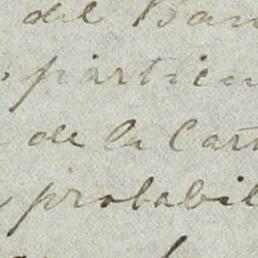 del Ban
particu
de la Cart
probabil